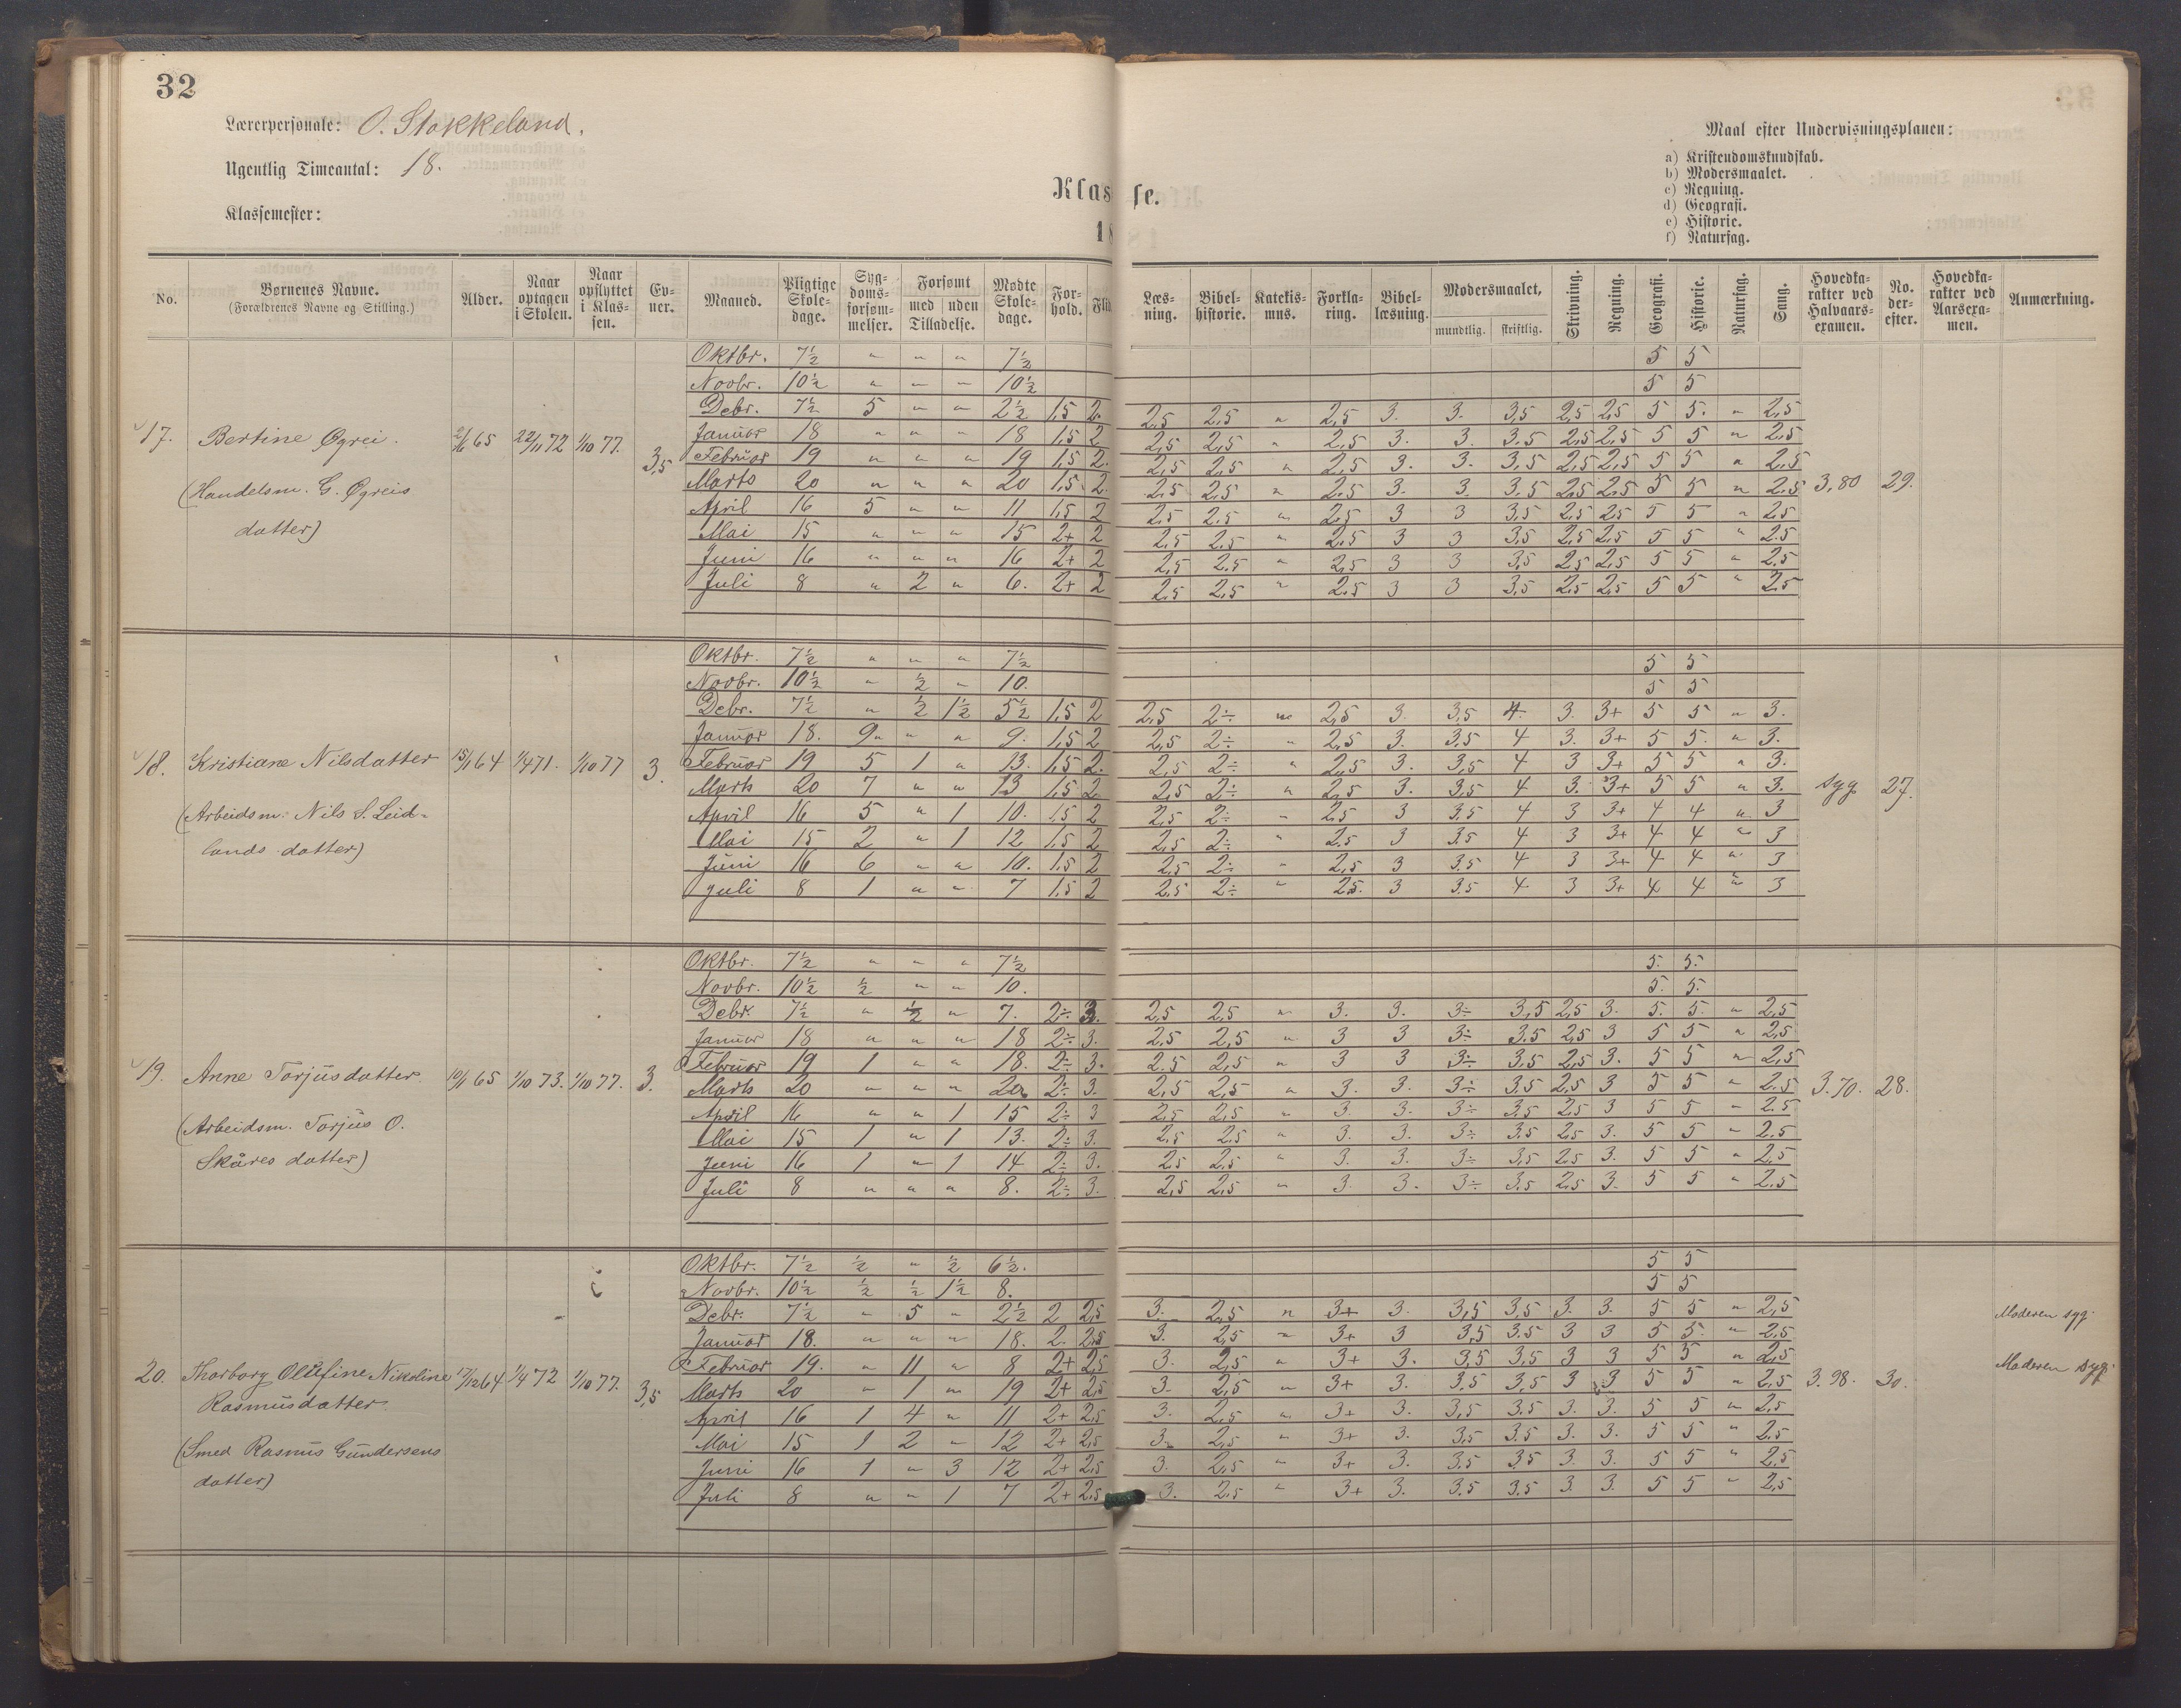 32
Lærerpersonale: O. Stokkeland.
Ugentlig Timeantal: 18.
Klassemester:
Klasse.
18
Maal efter Undervisningsplanen:
a) Kristendomskundskab.
b) Modersmaalet.
c) Regning.
d) Geografi.
e) Historie.
f) Naturfag.
No. | Børnenes Navne. (Forældrenes Navne og Stilling.) | Alder. | Naar optagen i Skolen. | Naar opflyttet i Klassen. | Evner. | Maaned. | Pligtige Skoledage. | Sygdomsforsømmelser. | Forsømt med Tilladelse. | uden Tilladelse. | Mødte Skoledage. | Forhold. | Flid | Læsning. | Bibelhistorie. | Katekismus. | Forklaring. | Bibellæsning. | Modersmaalet, mundtlig. | skriftlig. | Skrivning. | Regning. | Geografi. | Historie. | Naturfag. | Sang. | Hovedkarakter ved Halvaarsexamen. | No. derefter. | Hovedkarakter ved Aarsexamen. | Anmærkning.
17. Bertine Øgrei. 2/6 65 22/11 72 1/10 77. 3,5
(Handelsm. G. Øgreis
datter)
Oktbr. 7½ " " " 7½ 5 5
Novbr. 10½ " " " 10½ 5 5
Debr. 7½ 5 " " 2½ 1,5 2. 2,5 2,5 " 2,5 3. 3. 3,5 2,5 2,5 5 5. " 2,5
Januar 18 " " " 18 1,5 2 2,5 2,5 " 2,5 3. 3. 3,5 2,5 2,5 5 5 " 2,5
Februar 19 " " " 19 1,5 2. 2,5 2,5 " 2,5 3. 3. 3,5 2,5 2,5 5 5 " 2,5
Marts 20 " " " 20 1,5 2. 2,5 2,5 " 2,5 3. 3. 3,5 2,5 2,5 5 5 " 2,5 3,80 29.
April 16 5 " " 11 1,5 2 2,5 2,5 " 2,5 3 3 3,5 2,5 2,5 5 5 " 2,5
Mai 15 " " " 15 2+ 2 2,5 2,5 " 2,5 3 3 3,5 2,5 2,5 5 5 " 2,5
Juni 16 " " " 16 2+ 2 2,5 2,5 " 2,5 3 3 3,5 2,5 2,5 5 5 " 2,5
Juli 8 " 2 " 6. 2+ 2 2,5 2,5 " 2,5 3 3 3,5 2,5 2,5 5 5 " 2,5
18. Kristiane Nilsdatter 15/1 64 1/4 71. 1/10 77 3.
(Arbeidsm. Nils S. Leid-
lands datter)
Oktbr. 7½ " " " 7½ 5 5
Novbr. 10½ " ½ " 10. 5 5
Debr. 7½ " ½ 1½ 5½ 1,5 2 2,5 2÷ " 2,5 3. 3,5 4. 3. 3+ 5 5 " 3.
Januar 18. 9 " " 9. 1,5 2 2,5 2÷ " 2,5 3. 3,5 4 3. 3+ 5 5. " 3.
Februar 19 5 1 " 13. 1,5 2. 2,5 2÷ " 2,5 3. 3,5 4 3 3+ 5 5 " 3.
Marts 20 7 " " 13 1,5 2 2,5 2÷ " 2,5 3. 3,5 4 3. 3+ 5 5 " 3. syg 27.
April 16 5 " 1 10. 1,5 2 2,5 2÷ " 2,5 3 3,5 4 3 3+ 4 4 " 3
Mai 15 2 " 1 12 1,5 2 2,5 2÷ " 2,5 3 3,5 4 3 3+ 4 4 " 3
Juni 16 6 " " 10. 1,5 2 2,5 2÷ " 2,5 3 3,5 4 3 3+ 4 4 " 3
Juli 8 1 " " 7 1,5 2 2,5 2÷ " 2,5. 3 3,5 4 3 3+ 4 4 " 3
19. Anne Torjusdatter. 10/1 65 1/10 73. 1/10 77. 3.
(Arbeidsm. Torjus O.
Skåres datter)
Oktbr. 7½ " " " 7½ 5. 5.
Novbr. 10½ ½ " " 10. 5. 5.
Debr. 7½ " ½ " 7. 2÷ 3. 2,5 2,5 " 3. 3. 3÷ 3,5 2,5 3. 5. 5. " 2,5
Januar 18 " " " 18 2÷ 3. 2,5 2,5 " 3 3 3÷ 3,5 2,5 3 5 5 " 2,5
Februar 19 1 " " 18. 2÷ 3. 2,5 2,5 " 3 3 3÷ 3,5 2,5 3. 5 5 " 2,5
Marts 20 " " " 20. 2÷ 3. 2,5 2,5 " 3. 3. 3÷ 3,5 2,5 3 5 5 " 2,5 3.70. 28.
April 16 " " 1 15 2÷ 3 2,5 2,5 " 3. 3. 3÷ 3,5 2,5 3 5 5 " 2,5
Mai 15 1 " 1 13. 2÷ 3. 2,5 2,5 " 3. 3. 3÷ 3,5 2,5 3. 5 5 " 2,5
Juni 16 1 " 1 14 2÷ 3. 2,5 2,5 " 3. 3. 3÷ 3,5 2,5 3. 5 5 " 2,5
Juli 8 " " " 8. 2÷ 3. 2,5 2,5 " 3 3. 3÷ 3,5 2,5 3. 5 5 " 2,5
20. Thorborg Olufine Nikoline 17/12 64 1/4 72 1/10 77. 3,5
Rasmusdatter.
(Smed Rasmus Gundersens
datter)
Oktbr. 7½ ½ " ½ 6½. 5 5
Novbr. 10½ ½ ½ 1½ 8. 5 5
Debr. 7½ " 5 " 2½ 2 2,5 3. 2,5 " 3+ 3. 3,5 3,5 3. 3. 5 5 " 2,5 Moderen syg.
Januar 18. " " " 18. 2. 2,5 3. 2,5 " 3+ 3 3,5 3,5 3 3 5 5. " 2,5
Februar 19. " 11 " 8 2+ 2,5 3. 2,5 " 3+ 3. 3,5 3,5 3 3 5 5 " 2,5 Moderen syg.
Marts 20 " 1 " 19 2+ 2,5 3. 2,5 " 3+ 3. 3,5 3,5 3 3 5 5 " 2,5 3.98. 30.
April 16 1 4 " 11 2+ 2,5 3. 2,5 " 3+ 3. 3,5 3,5 3. 3. 5 5 " 2,5
Mai 15 1 2 " 12 2+ 2,5 3. 2,5 " 3+ 3. 3,5 3,5 3. 3. 5 5 " 2,5
Juni 16 1 " 3 12 2+ 2,5 3. 2,5 " 3+ 3. 3,5 3,5 3. 3. 5 5 " 2,5
Juli 8 " " 1 7 2+ 2,5 3. 2,5 " 3+ 3. 3,5 3,5 3. 3. 5 5 " 2,5